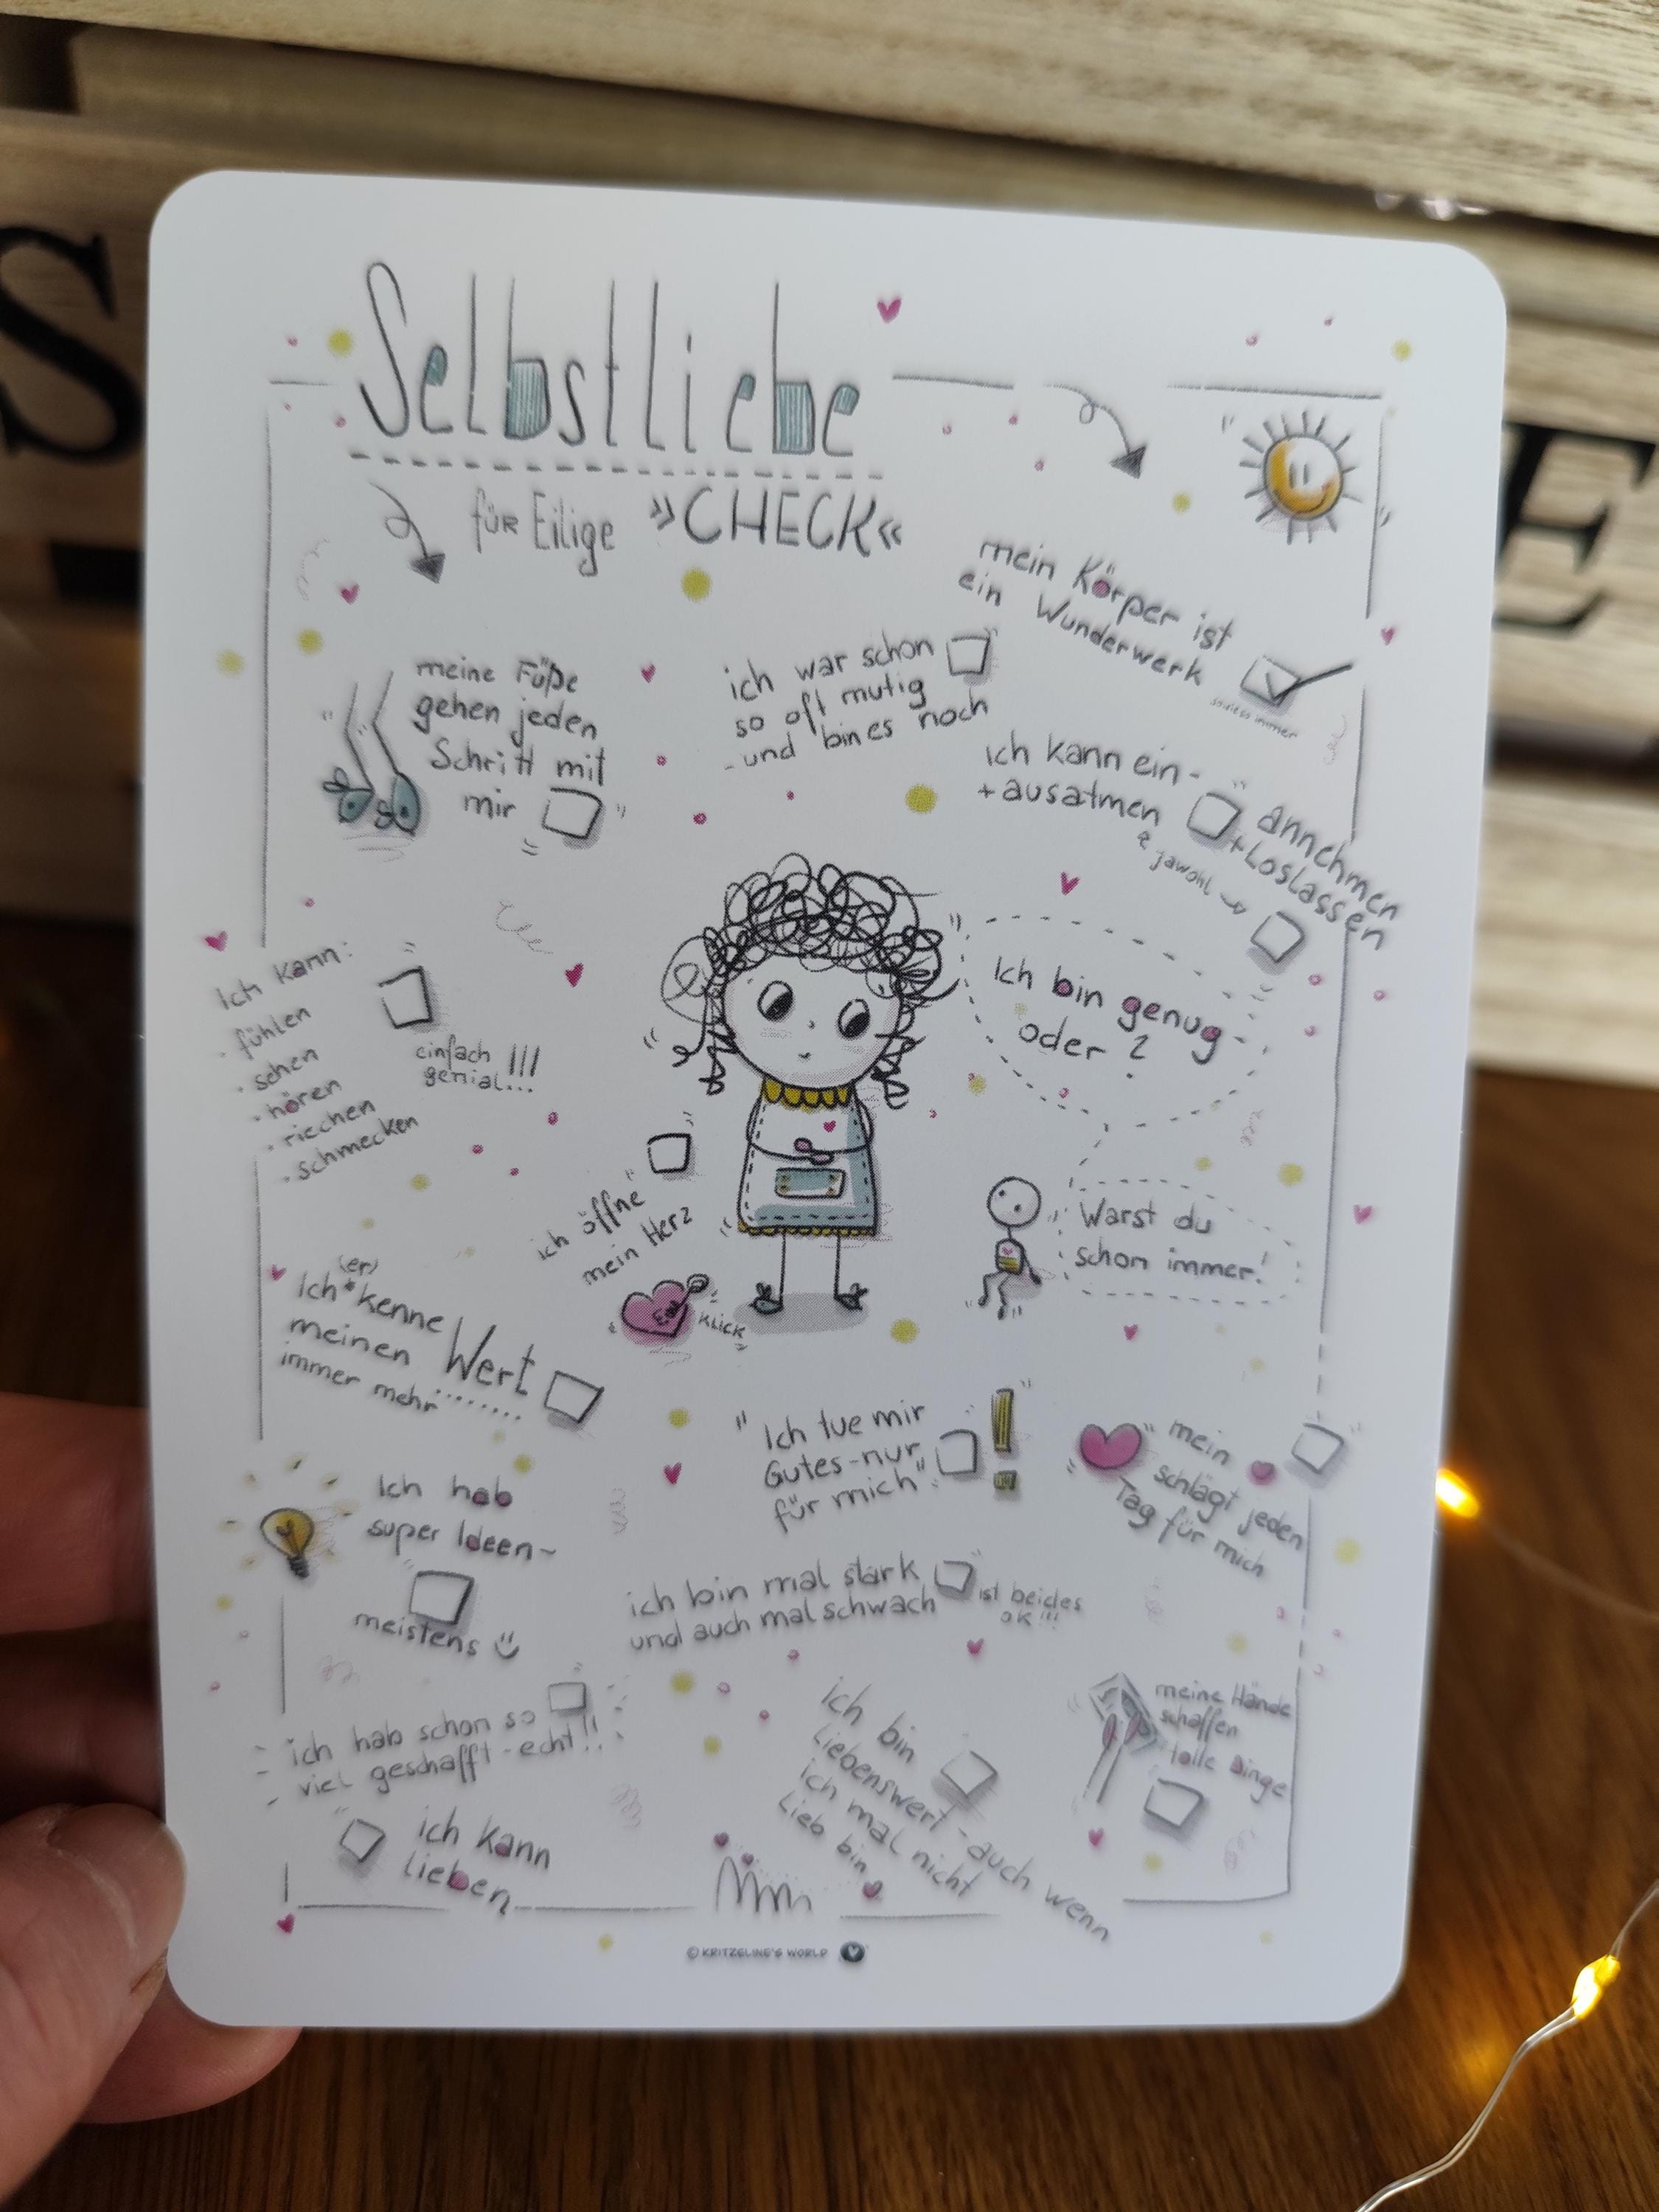 Selbstliebe
für Eilige »CHECK«
mein Körper ist
ein Wunderwerk
meine Füße
gehen jeden
Schritt mit
mir
ich war schon
so oft mutig
- und bin es noch
ich kann ein-
+ ausatmen
jawohl
annehmen
+ Loslassen
Ich kann:
· fühlen
· sehen
· hören
· riechen
· schmecken
einfach
genial... !!!
Ich bin genug -
oder ?
Warst du
schon immer!
ich öffne
mein Herz
KLICK
(er)
Ich * kenne
meinen Wert
immer mehr ........
"Ich tue mir
Gutes - nur
für mich" !
mein
schlägt jeden
Tag für mich
Ich hab
super Ideen ~
meistens
ich bin mal stark
und auch mal schwach
ist beides
OK !!!
ich hab schon so
viel geschafft - echt!!
ich kann
lieben
ich bin
liebenswert - auch wenn
ich mal nicht
lieb bin
meine Hände
schaffen
tolle Dinge
© KRITZELINE'S WORLD
S
E